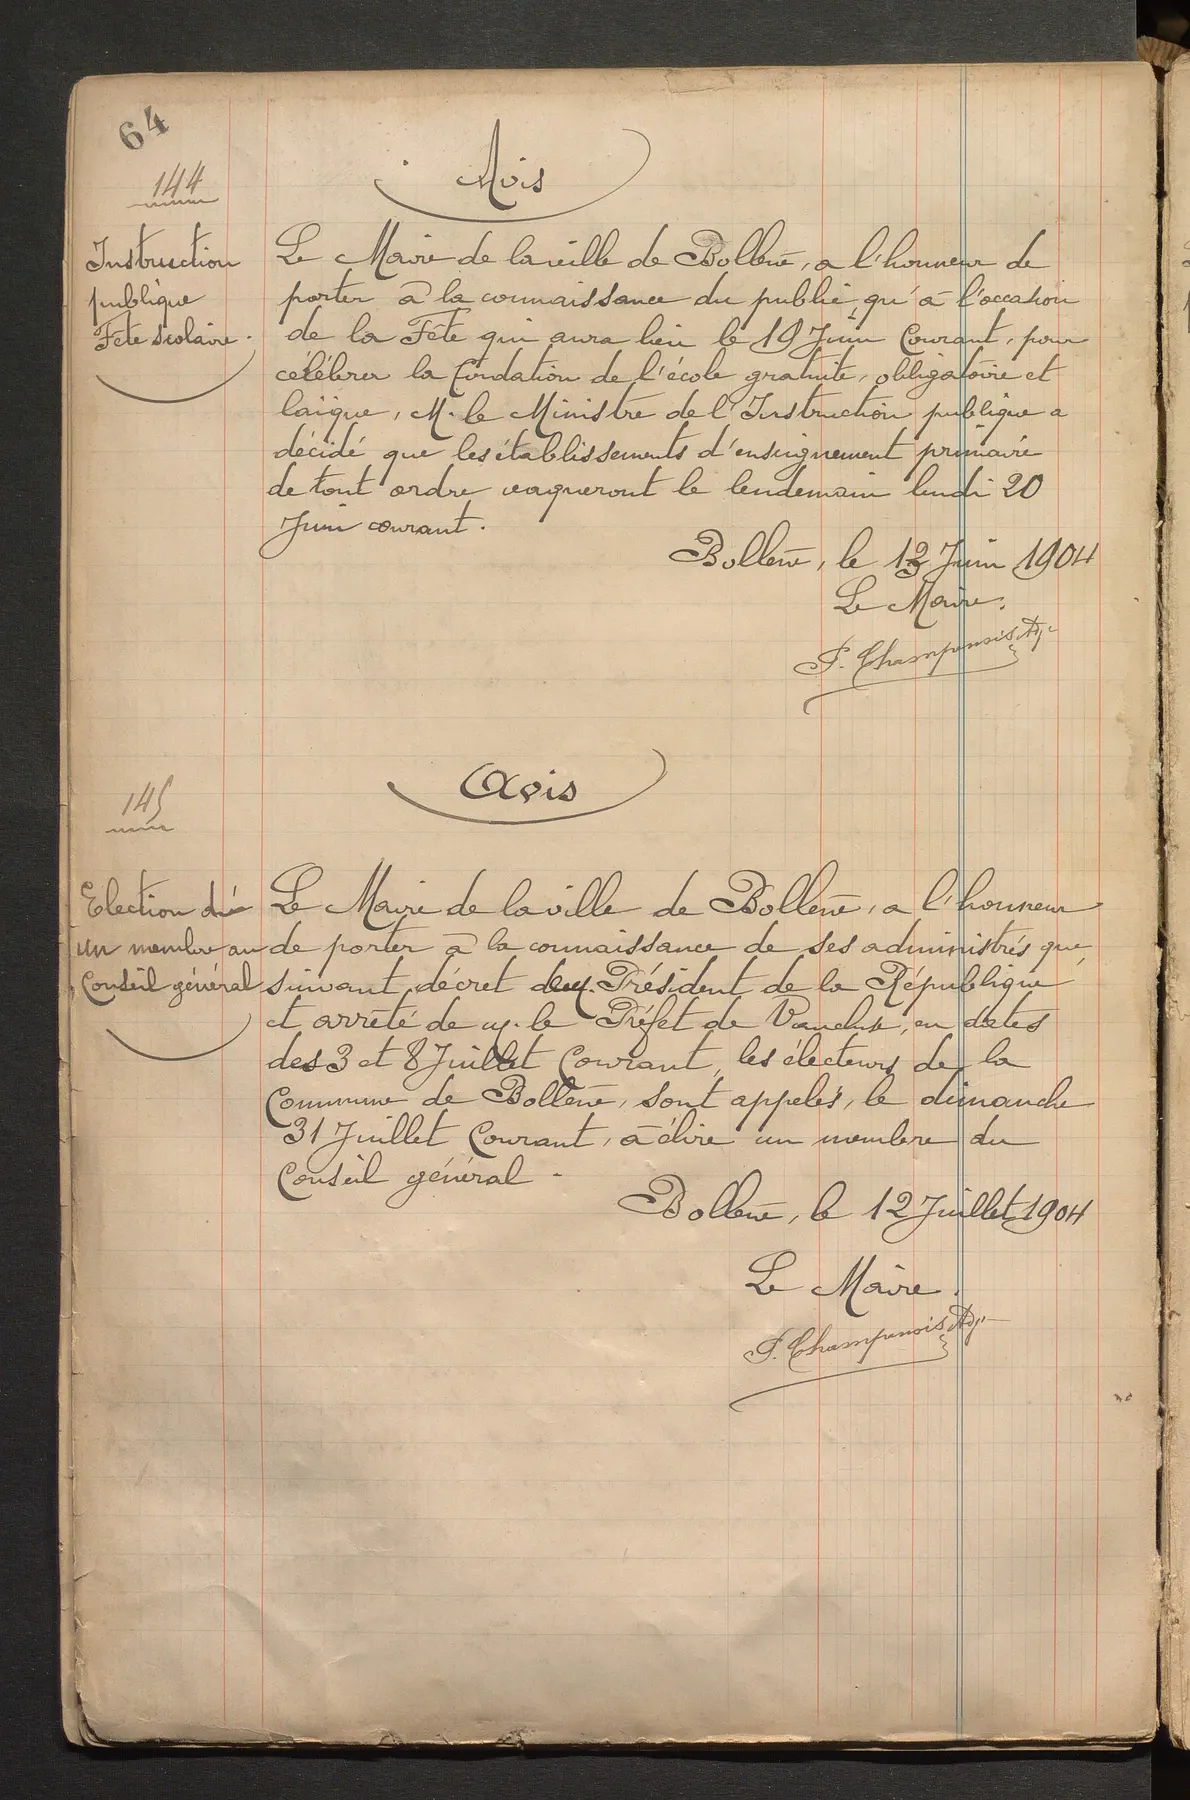 64
144
Avis
Instruction
publique
Fête scolaire.
Le Maire de la ville de Bollène, a l'honneur de
porter à la connaissance du public qu'à l'occasion
de la Fête qui aura lieu le 19 Juin Courant, pour
célébrer la fondation de l'école gratuite, obligatoire et
laïque, M. le Ministre de l'Instruction publique a
décidé que les établissements d'enseignement primaire
de tout ordre vaqueront le lendemain lundi 20
Juin courant.
Bollène, le 13 Juin 1904
Le Maire.
P. Champanois, Adj.
145
Avis
Election d'
un membre au
Conseil général
Le Maire de la ville de Bollène, a l'honneur
de porter à la connaissance de ses administrés que,
suivant décret de M. Président de la République
et arrêté de M. le Préfet de Vaucluse, en dates
des 3 et 8 Juillet Courant, les électeurs de la
Commune de Bollène, sont appelés, le dimanche
31 Juillet Courant, à élire un membre du
Conseil général.
Bollène, le 12 Juillet 1904
Le Maire.
P. Champanois, Adj.